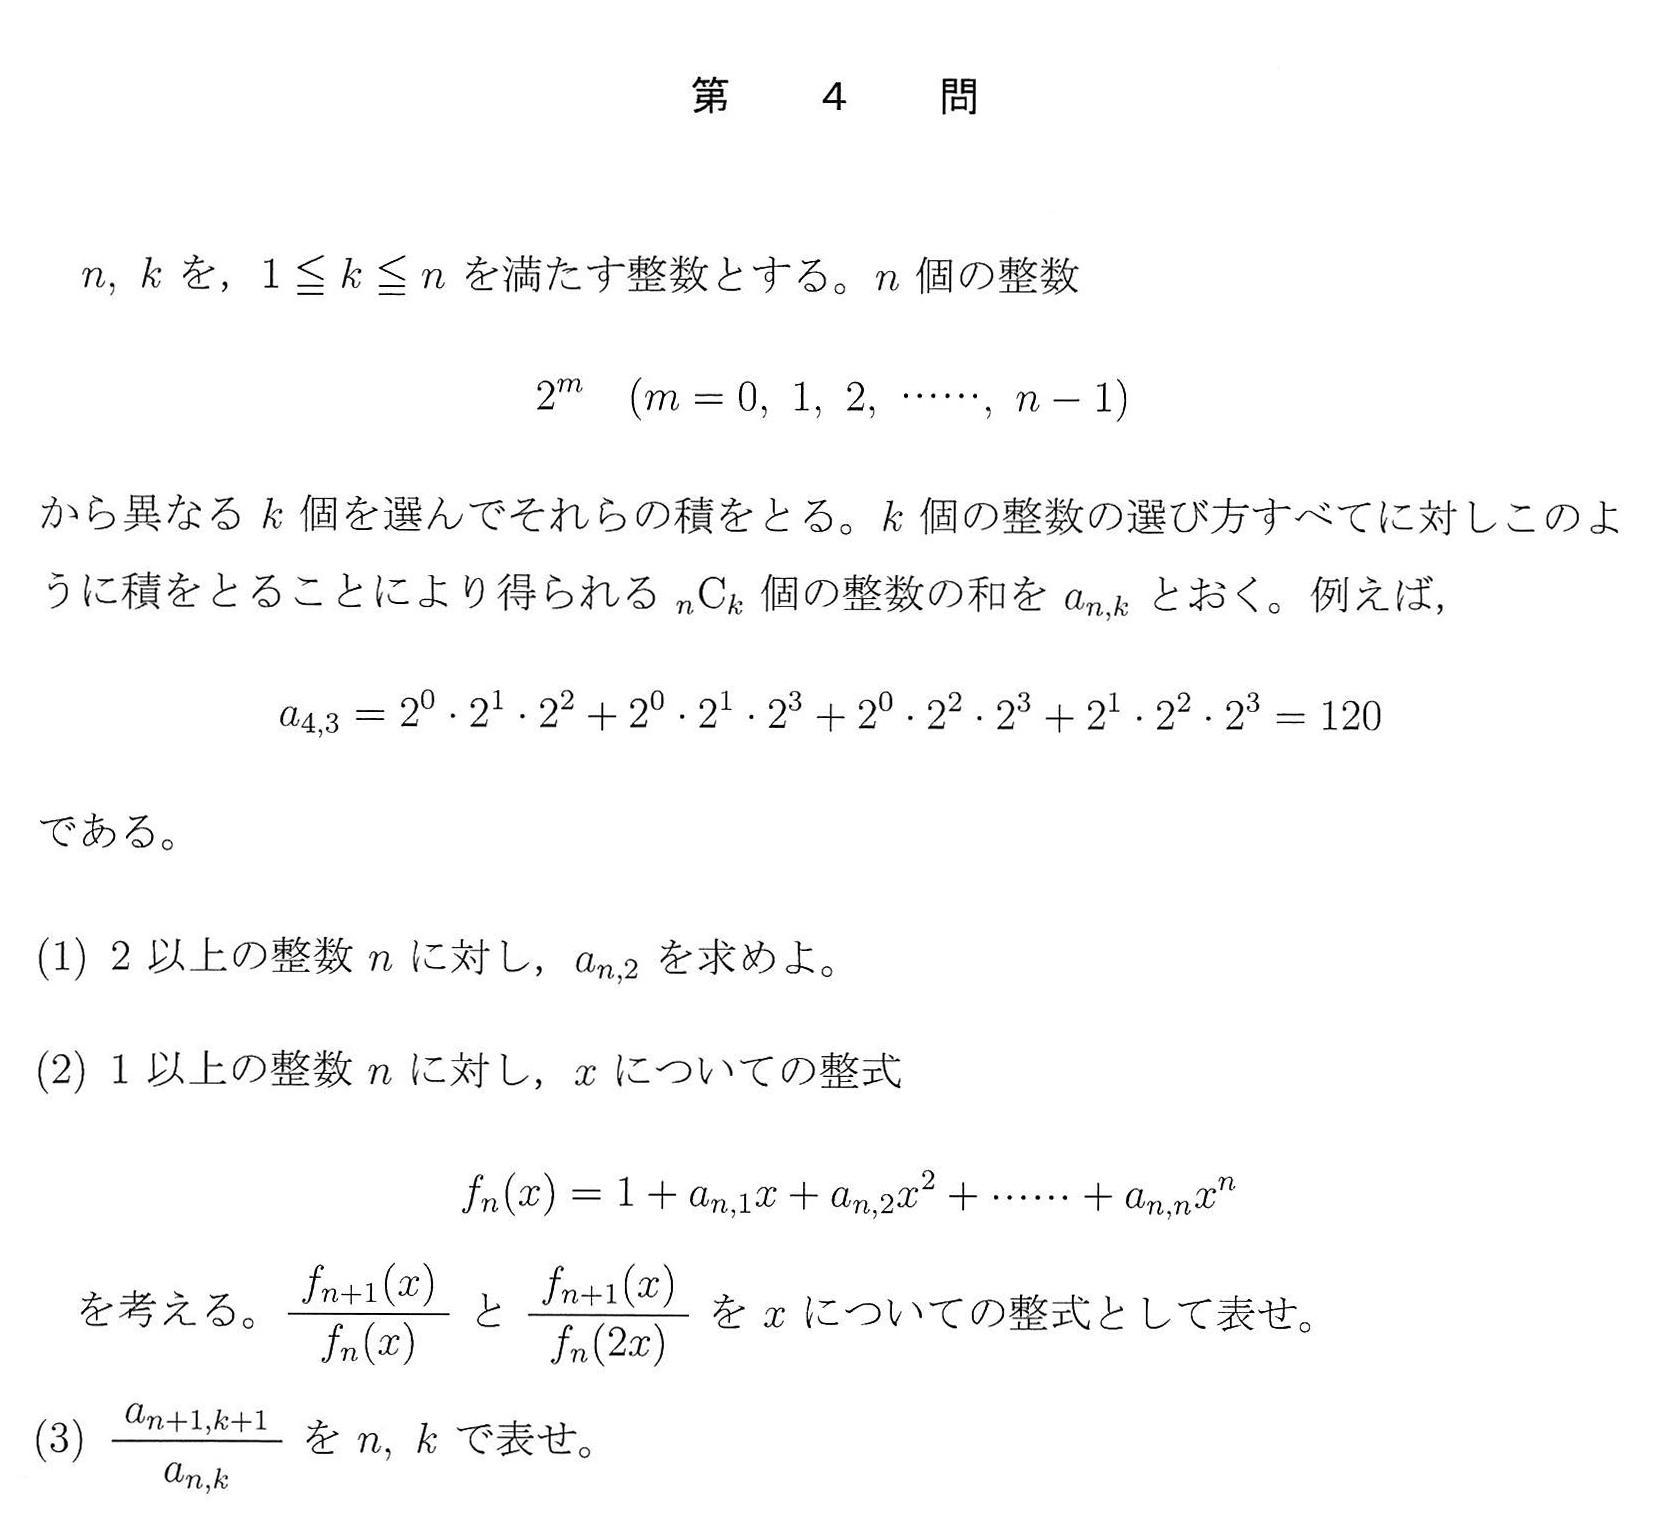 第 4 問
n, k を, 1 ≦ k ≦ n を満たす整数とする。n 個の整数
2^m (m = 0, 1, 2, ……, n − 1)
から異なる k 個を選んでそれらの積をとる。k 個の整数の選び方すべてに対しこのよ
うに積をとることにより得られる _nC_k 個の整数の和を a_{n,k} とおく。例えば,
a_{4,3} = 2^0 · 2^1 · 2^2 + 2^0 · 2^1 · 2^3 + 2^0 · 2^2 · 2^3 + 2^1 · 2^2 · 2^3 = 120
である。
(1) 2 以上の整数 n に対し, a_{n,2} を求めよ。
(2) 1 以上の整数 n に対し, x についての整式
f_n(x) = 1 + a_{n,1}x + a_{n,2}x^2 + …… + a_{n,n}x^n
を考える。\frac{f_{n+1}(x)}{f_n(x)} と \frac{f_{n+1}(x)}{f_n(2x)} を x についての整式として表せ。
(3) \frac{a_{n+1,k+1}}{a_{n,k}} を n, k で表せ。